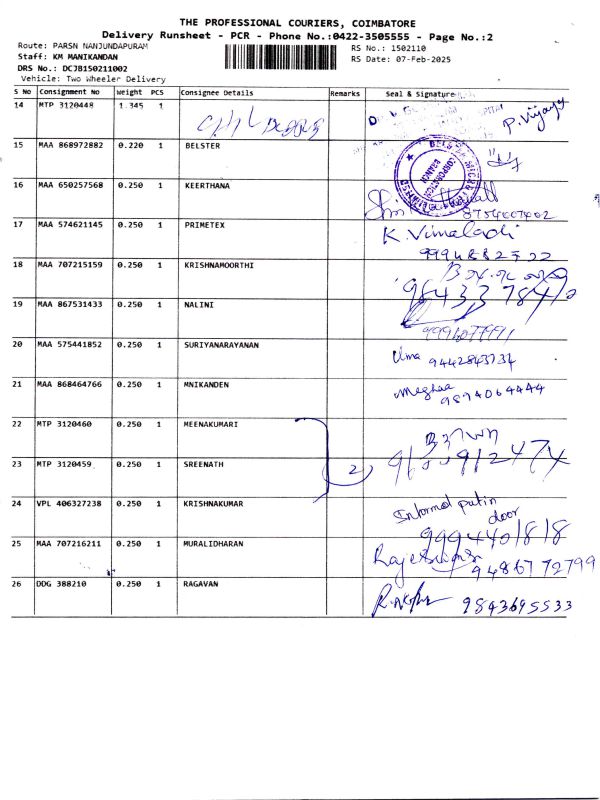 THE PROFESSIONAL COURIERS, COIMBATORE
Delivery Runsheet - PCR - Phone No.:0422-3505555 - Page No.:2
Route: PARSN NANJUNDAPURAM
RS No.: 1502110
Staff: KM MANIKANDAN
RS Date: 07-Feb-2025
DRS No.: DCJB150211002
Vehicle: Two Wheeler Delivery
S No Consignment No Weight PCS Consignee Details Remarks Seal & Signature
14 MTP 3120448 1.345 1 P. Vijaya
15 MAA 868972882 0.220 1 BELSTER
16 MAA 650257568 0.250 1 KEERTHANA 8754007402
17 MAA 574621145 0.250 1 PRIMETEX K. Vimaladi
18 MAA 707215159 0.250 1 KRISHNAMOORTHI
19 MAA 867531433 0.250 1 NALINI
20 MAA 575441852 0.250 1 SURIYANARAYANAN Uma 9442843734
21 MAA 868464766 0.250 1 MNIKANDEN Meghaa 9894064444
22 MTP 3120460 0.250 1 MEENAKUMARI
23 MTP 3120459 0.250 1 SREENATH 2 9600912474
24 VPL 406327238 0.250 1 KRISHNAKUMAR Informed putin door
9994401818
25 MAA 707216211 0.250 1 MURALIDHARAN 9486772799
26 DDG 388210 0.250 1 RAGAVAN 9843695533